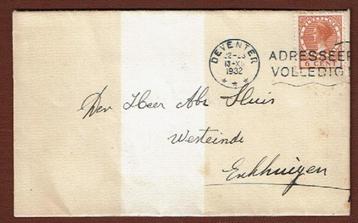 DEVENTER
13-XII
1932
ADRESSEER
VOLLEDIG
6 CENT
Den Heer Abr Sluis
Westeinde
Enkhuizen